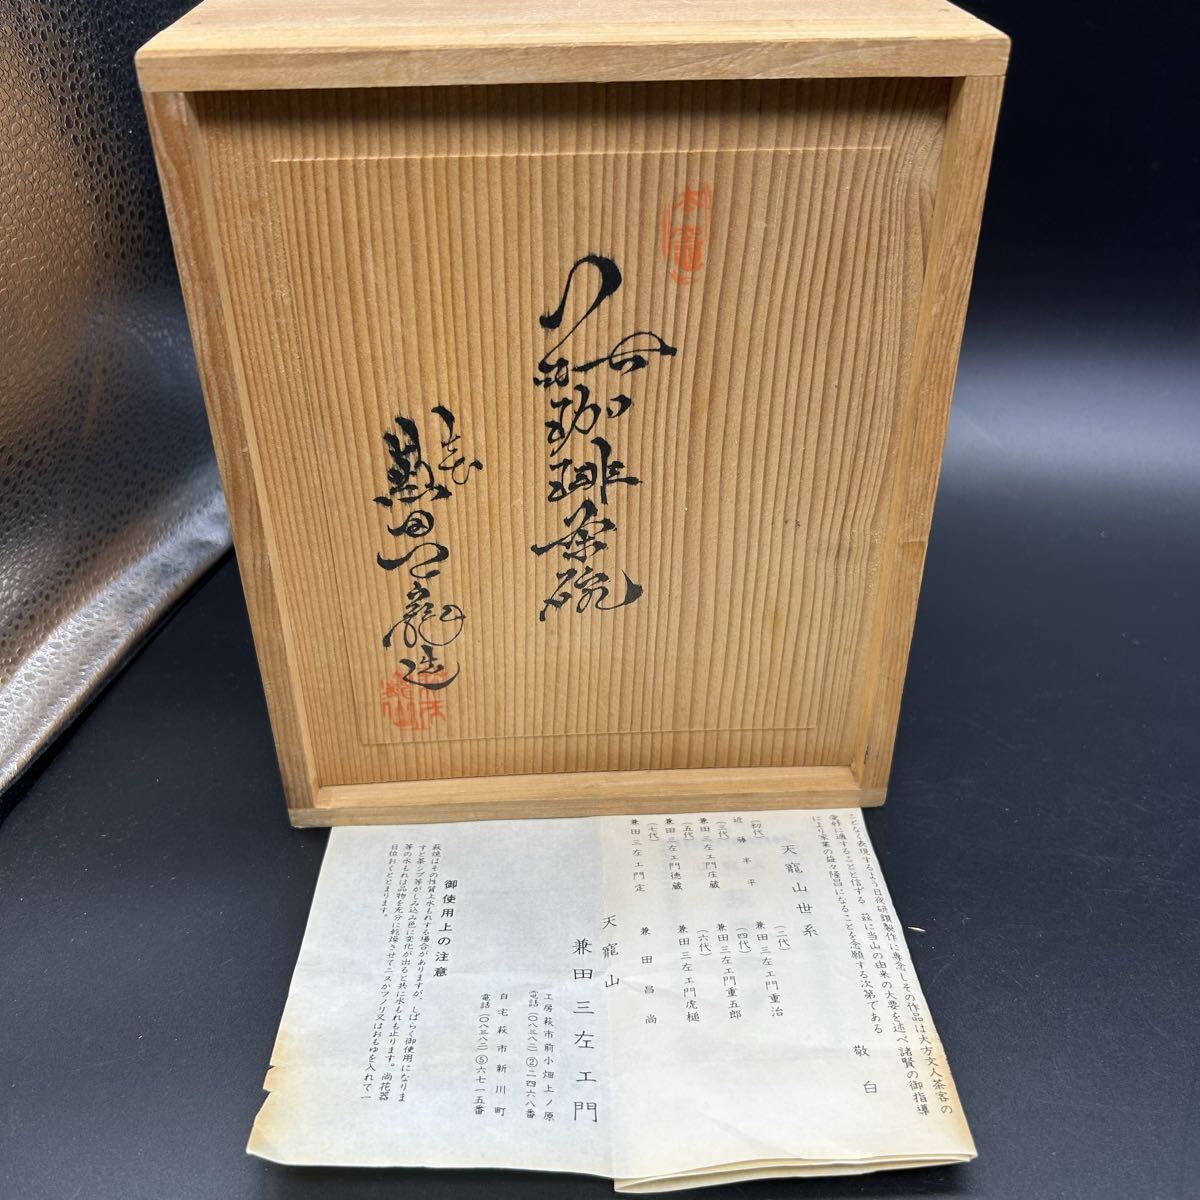 珈琲茶碗
造
ことなく表現するよう日夜研鑚製作に専念しその作品は大方文人茶客の
愛好に適することと信ずる 茲に当山の由来の大要を述べ諸賢の御指導
により家業の益々隆昌になることを念願する次第である
敬白
天寵山世系
(初代)
近藤平平
(二代)
兼田三左ェ門重治
(三代)
兼田三左ェ門庄蔵
(四代)
兼田三左ェ門重五郎
(五代)
兼田三左ェ門徳蔵
(六代)
兼田三左ェ門虎槌
(七代)
兼田三左ェ門定
兼田昌尚
天寵山
兼田三左ェ門
工房萩市前小畑上ノ原
電話(〇八三八二)②二四六八番
自宅萩市新川町
電話(〇八三八二)⑤六七一五番
御使用上の注意
萩焼はその性質上水もれする場合がありますが、しばらく御使用になりま
すと茶シブ等がしみ込み色に変化が出ると共に水もれも止ります。尚花器
等の水もれは品物を充分に乾燥させてニスかフノリ又はおもゆを入れて一
日位おくととまります。